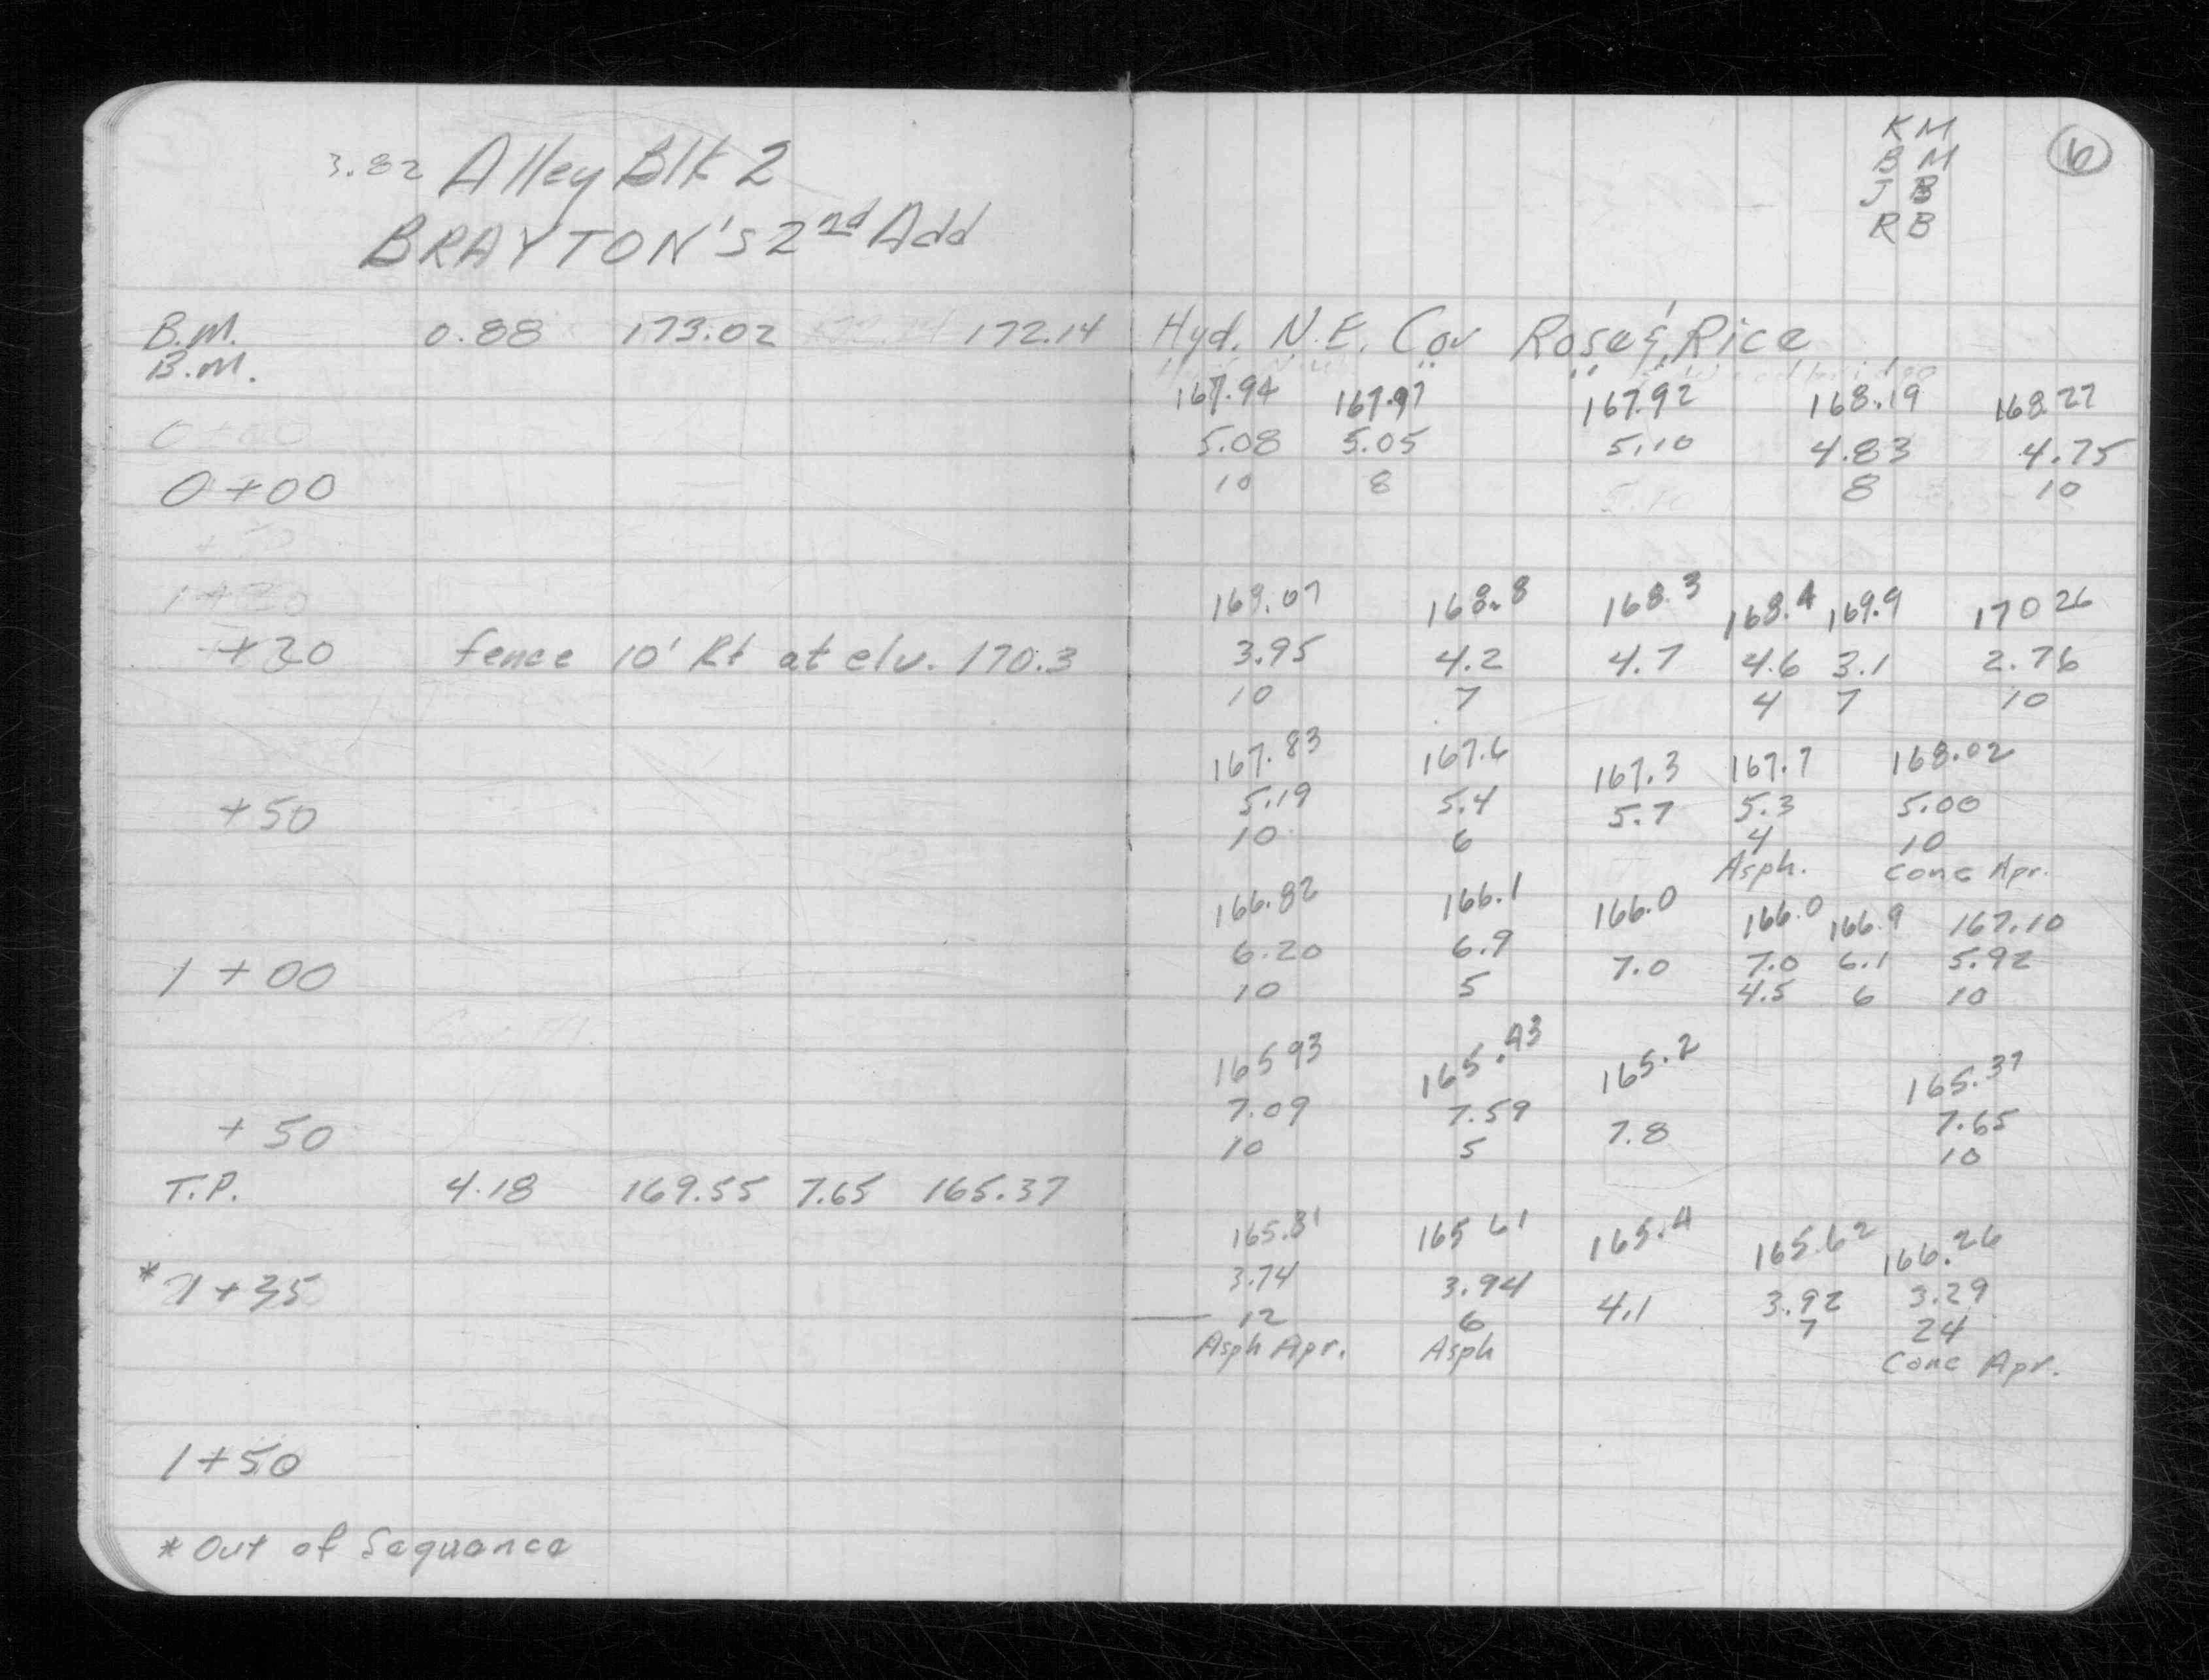 3.82 Alley Blk 2
BRAYTON'S 2nd Add
B.M. 0.88 173.02 172.14
B.M.
0+00
+30 fence 10' Rt at elv. 170.3
+50
1+00
+50
T.P. 4.18 169.55 7.65 165.37
* 1+35
1+50
* Out of Sequance
KM
BM
JB
RB
6
Hyd. N.E. Cor Rose & Rice
167.94 167.97 167.92 168.19 168.27
5.08 5.05 5.10 4.83 4.75
10 8 8 10
169.07 168.8 168.3 168.4 169.9 170 26
3.95 4.2 4.7 4.6 3.1 2.76
10 7 4 7 10
167.83 167.6 167.3 167.7 168.02
5.19 5.4 5.7 5.3 5.00
10 6 4 10
Asph. Conc Apr.
166.82 166.1 166.0 166.0 166.9 167.10
6.20 6.9 7.0 7.0 6.1 5.92
10 5 4.5 6 10
165 93 165.43 165.2 165.37
7.09 7.59 7.8 7.65
10 5 10
165.81 165 61 165.4 165.62 166.26
3.74 3.94 4.1 3.92 3.29
12 6 7 24
Asph Apr. Asph Conc Apr.